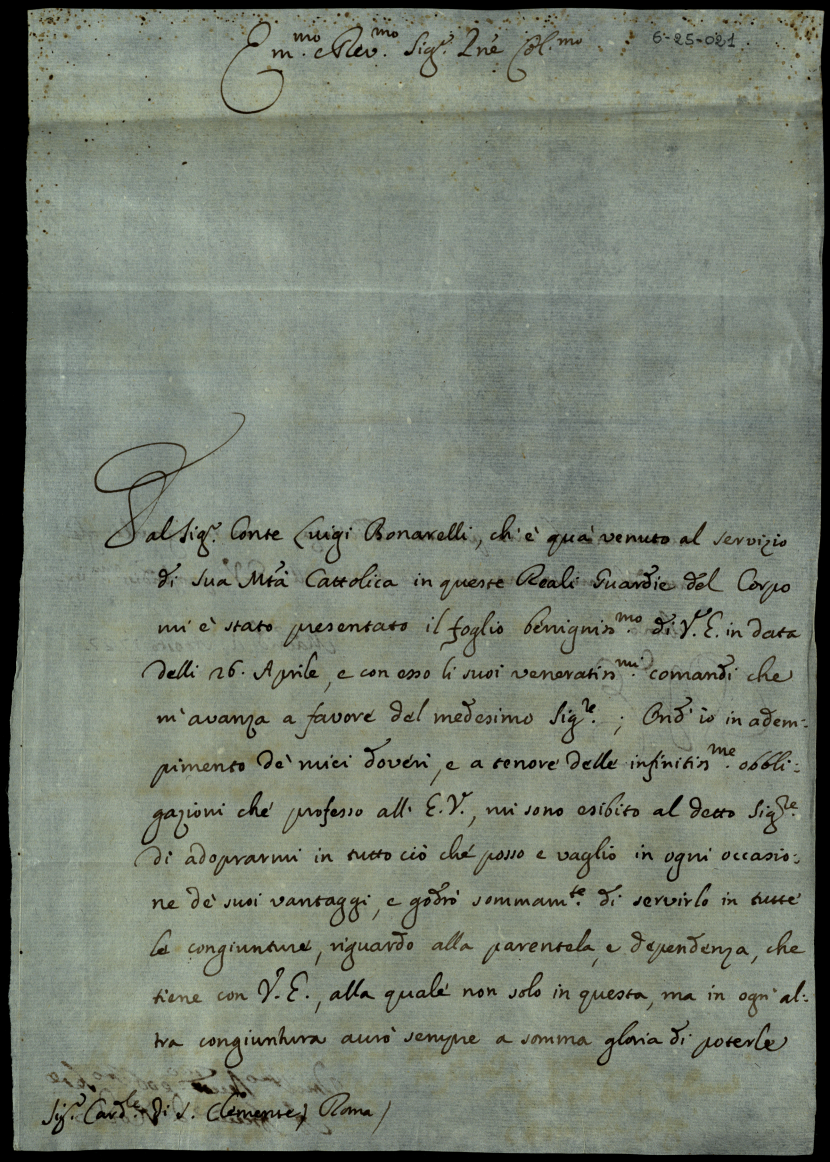 Em.mo e Rev.mo Sig.r Pne Col.mo
6-25-021
Dal Sig.r Conte Luigi Bonarelli, ch'è quà venuto al servizio
di Sua Mtà Cattolica in queste Reali Guardie del Corpo
mi è stato presentato il foglio benigniss.mo di V.E. in data
delli 26. Aprile, e con esso li suoi veneratiss.mi comandi che
m'avanza a favore del medesimo Sig.re; Ond'io in adem-
pimento de' miei doveri, e a tenore delle infinitiss.me obbli-
gazioni che professo all'E.V., mi sono esibito al detto Sig.re
di adoprarmi in tutto ciò che posso e vaglio in ogni occasio-
ne de' suoi vantaggi, e godrò sommam.te di servirlo in tutte
le congiunture, riguardo alla parentela, e dependenza, che
tiene con V.E., alla quale non solo in questa, ma in ogn'al-
tra congiuntura aurò sempre a somma gloria di poterle
Sig.r Card.le di S. Clemente) Roma)